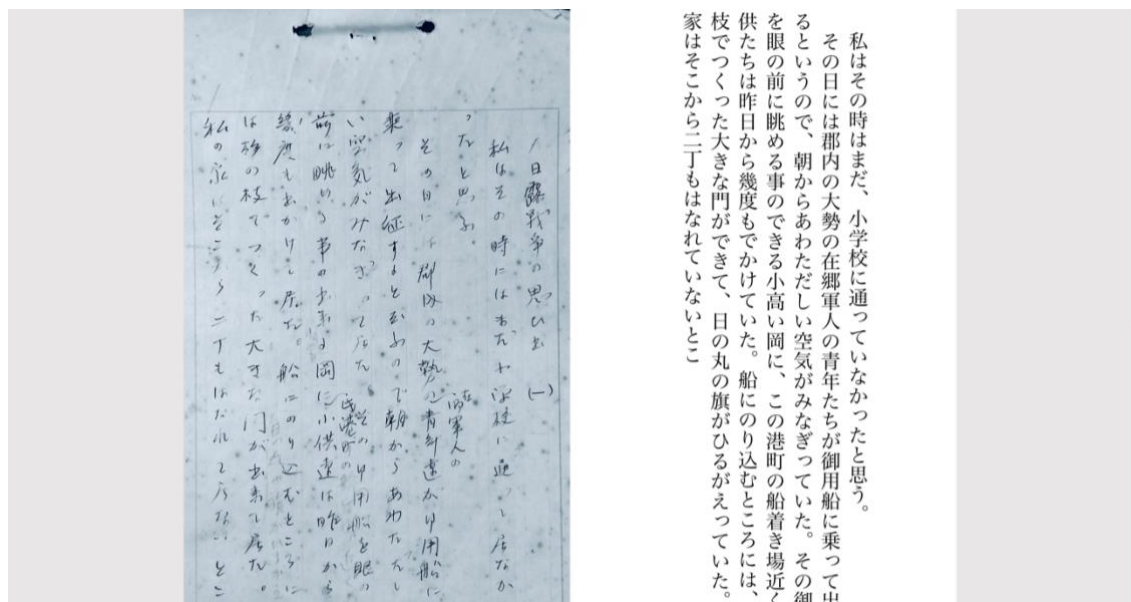 日露戦争の思ひ出 (一)
私はその時にはまだ小学校に通って居なか
ったと思ふ。
在郷軍人の
その日には郡内の大勢の青年達が御用船に
乗って出征すると云ふので朝からあわたゞし
い空気がみなぎって居た。その御用船を眼の
前に眺める事の出来る岡に小供達は昨日から
幾度も出かけて居た。船にのり込むところに
は杉の枝でつくった大きな門が出来て居た。
私の家はそこから二丁もはなれて居ないとこ
私はその時はまだ、小学校に通っていなかったと思う。
その日には郡内の大勢の在郷軍人の青年たちが御用船に乗って出
るというので、朝からあわただしい空気がみなぎっていた。その御
を眼の前に眺める事のできる小高い岡に、この港町の船着き場近く
供たちは昨日から幾度もでかけていた。船にのり込むところには、
枝でつくった大きな門ができて、日の丸の旗がひるがえっていた。
家はそこから二丁もはなれていないとこ